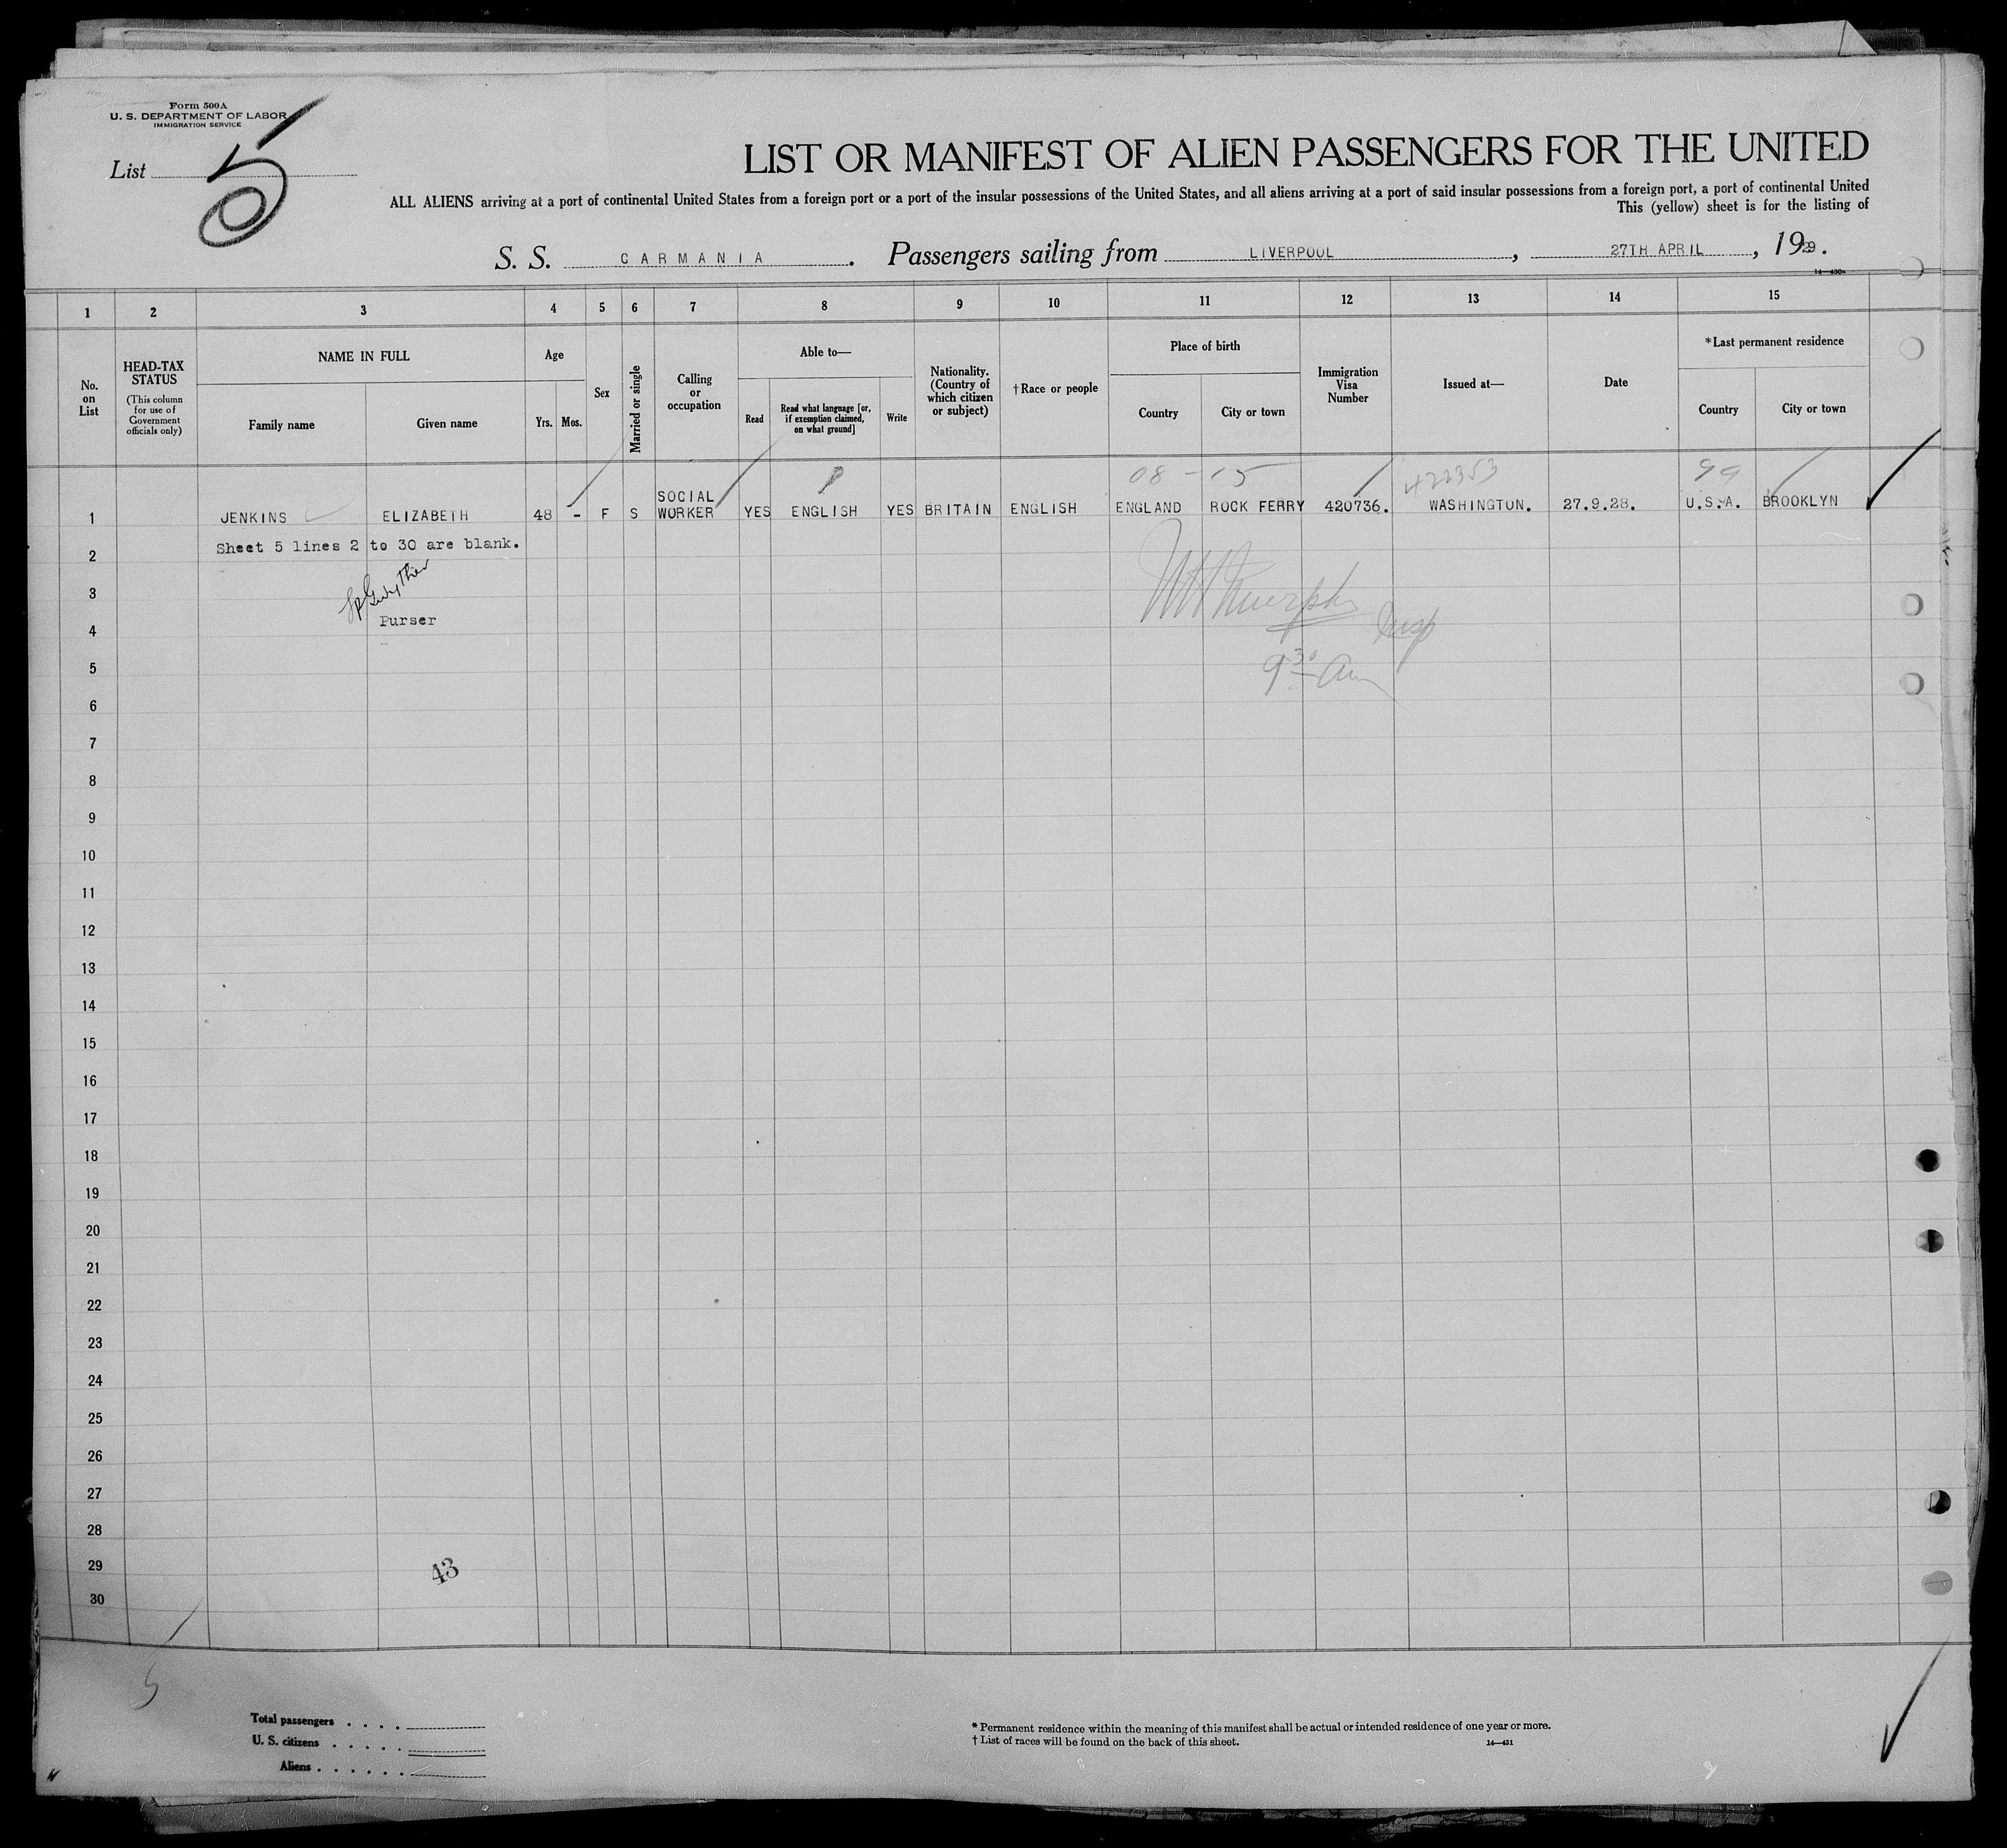 Form 500A
U. S. DEPARTMENT OF LABOR
IMMIGRATION SERVICE
List 5
LIST OR MANIFEST OF ALIEN PASSENGERS FOR THE UNITED
ALL ALIENS arriving at a port of continental United States from a foreign port or a port of the insular possessions of the United States, and all aliens arriving at a port of said insular possessions from a foreign port, a port of continental United
This (yellow) sheet is for the listing of
S. S. CARMANIA. Passengers sailing from LIVERPOOL, 27TH APRIL, 1929.
1 2 3 4 5 6 7 8 9 10 11 12 13 14 15
No. on List
HEAD-TAX STATUS
(This column for use of Government officials only)
NAME IN FULL
Family name
Given name
Age
Yrs. Mos.
Sex
Married or single
Calling or occupation
Able to—
Read
Read what language [or, if exemption claimed, on what ground]
Write
Nationality. (Country of which citizen or subject)
†Race or people
Place of birth
Country
City or town
Immigration Visa Number
Issued at—
Date
*Last permanent residence
Country
City or town
08 - 15 99
1 JENKINS ELIZABETH 48 - F S SOCIAL WORKER YES ENGLISH YES BRITAIN ENGLISH ENGLAND ROCK FERRY 420736. WASHINGTON. 27.9.28. U.S.A. BROOKLYN
Sheet 5 lines 2 to 30 are blank.
2
3
Purser
4
Insp
5
9 30 am
6
7
8
9
10
11
12
13
14
15
16
17
18
19
20
21
22
23
24
25
26
27
28
29
43
30
5
Total passengers . . . .
U. S. citizens . . . . .
Aliens . . . . . .
* Permanent residence within the meaning of this manifest shall be actual or intended residence of one year or more.
† List of races will be found on the back of this sheet.
14—431